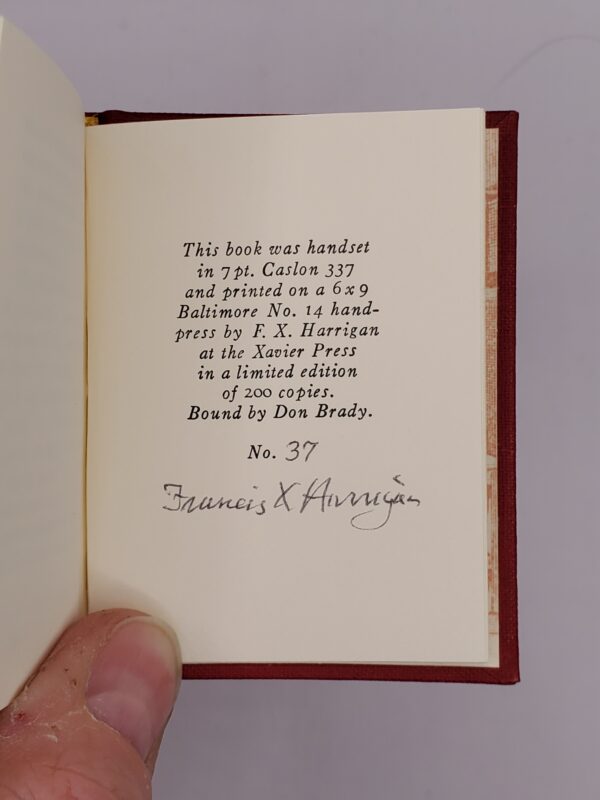 This book was handset
in 7 pt. Caslon 337
and printed on a 6x9
Baltimore No. 14 hand-
press by F. X. Harrigan
at the Xavier Press
in a limited edition
of 200 copies.
Bound by Don Brady.
No. 37
Francis X Harrigan